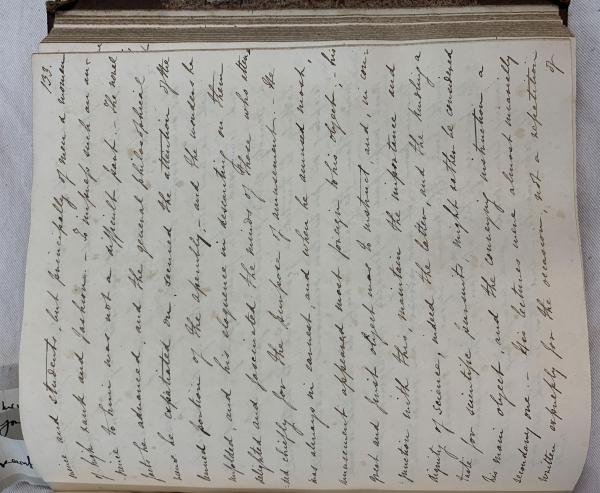 133.
ence and students, but principally of men & women
of high rank and fashion. - To impress such an au-
dience to him was not a difficult part. - The novel
facts he advanced, and the general philosophical
views he expatiated on, secured the attention of the
learned portion of the assembly, - and the wonders he
unfolded, and his eloquence in descanting on them
delighted and fascinated the minds of those who atten-
ded chiefly for the purpose of amusement. - He
was always in earnest, and when he amused most,
amusement appeared most foreign to his object; - his
great and first object was to instruct, and, in con-
junction with this, maintain the importance and
dignity of science; indeed the latter, and the kindling a
taste for scientific pursuits might rather be considered
his main object, and the conveying instruction a
secondary one. - His lectures were almost invariably
written expressly for the occasion, not a repetition
of